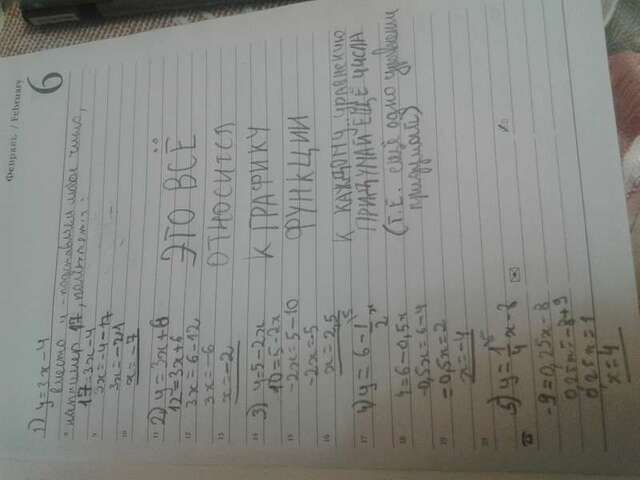 Февраль / February
6
1) y=3x-4
вместо y - подставляем любое число,
например 17, получается:
17=3x-4
9 3x=-4-17
3x=-21
10 x=-7
11 2) y=3x+6
12=3x+6
12 3x=6-12
3x=-6
13 x=-2
14 3) y=5-2x
10=5-2x
15 -2x=5-10
-2x=5
16 x=2,5
17 4) y=6-1/2x
18 4=6-0,5x
-0,5x=6-4
19 =0,5x=2
x=-4
20 5) y=1/4x-8
-9=0,25x-8
0,25x=-8+9
0,25x=1
x=4
ЭТО ВСЁ
ОТНОСИТСЯ
К ГРАФИКУ
ФУНКЦИИ
К КАЖДОМУ УРАВНЕНИЮ
ПРИДУМАЙ ЕЩЁ ЧИСЛА
(т.е. ещё одно уравнение
придумай)